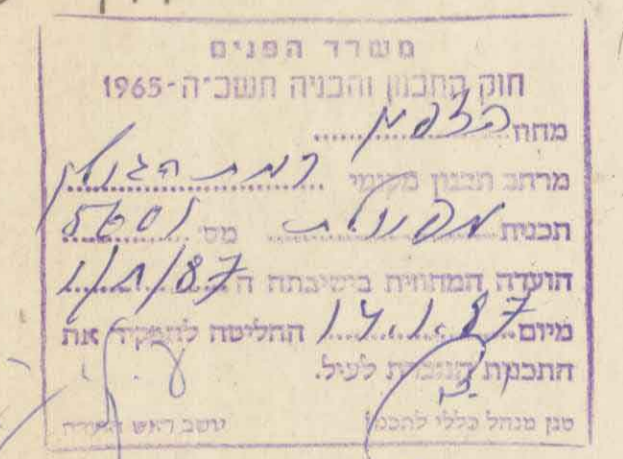 משרד הפנים
חוק התכנון והבניה תשכ"ה-1965
מחוז הצפון
מרחב תכנון מקומי רמת הגולן
תכנית מפורטת מס'
הועדה המחוזית בישיבתה ה
מיום 14.1.87 החליטה להפקיד את
התכנית הנזכרת לעיל.
סגן מנהל כללי לתכנון יושב ראש הועדה